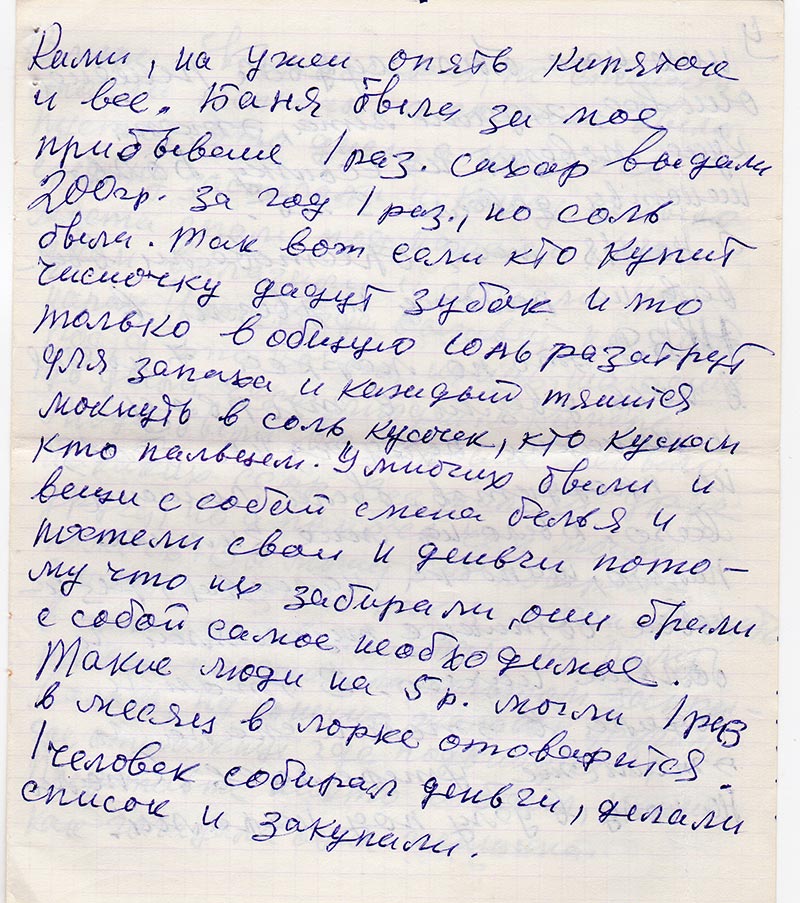 Rами, на ужен опять кипяток
и все. Баня была за мое
прибывание 1 раз. сахар выдали
200гр. за год 1 раз., но соль
была. Так вот если кто купит
чисночку дадут зубок и то
только в общую соль разатрут
для запаха и каждый тянится
мокнуть в соль кусочек, кто куском
кто пальцем. У многих были и
вещи с собой смена белья и
постели свои и деньги, пото-
му что их забирали, они брали
с собой самое необходимое.
Такие люди на 5 р. могли 1 раз
в месяц в ларке отоварится.
1 человек собирал деньги, делали
список и закупали.